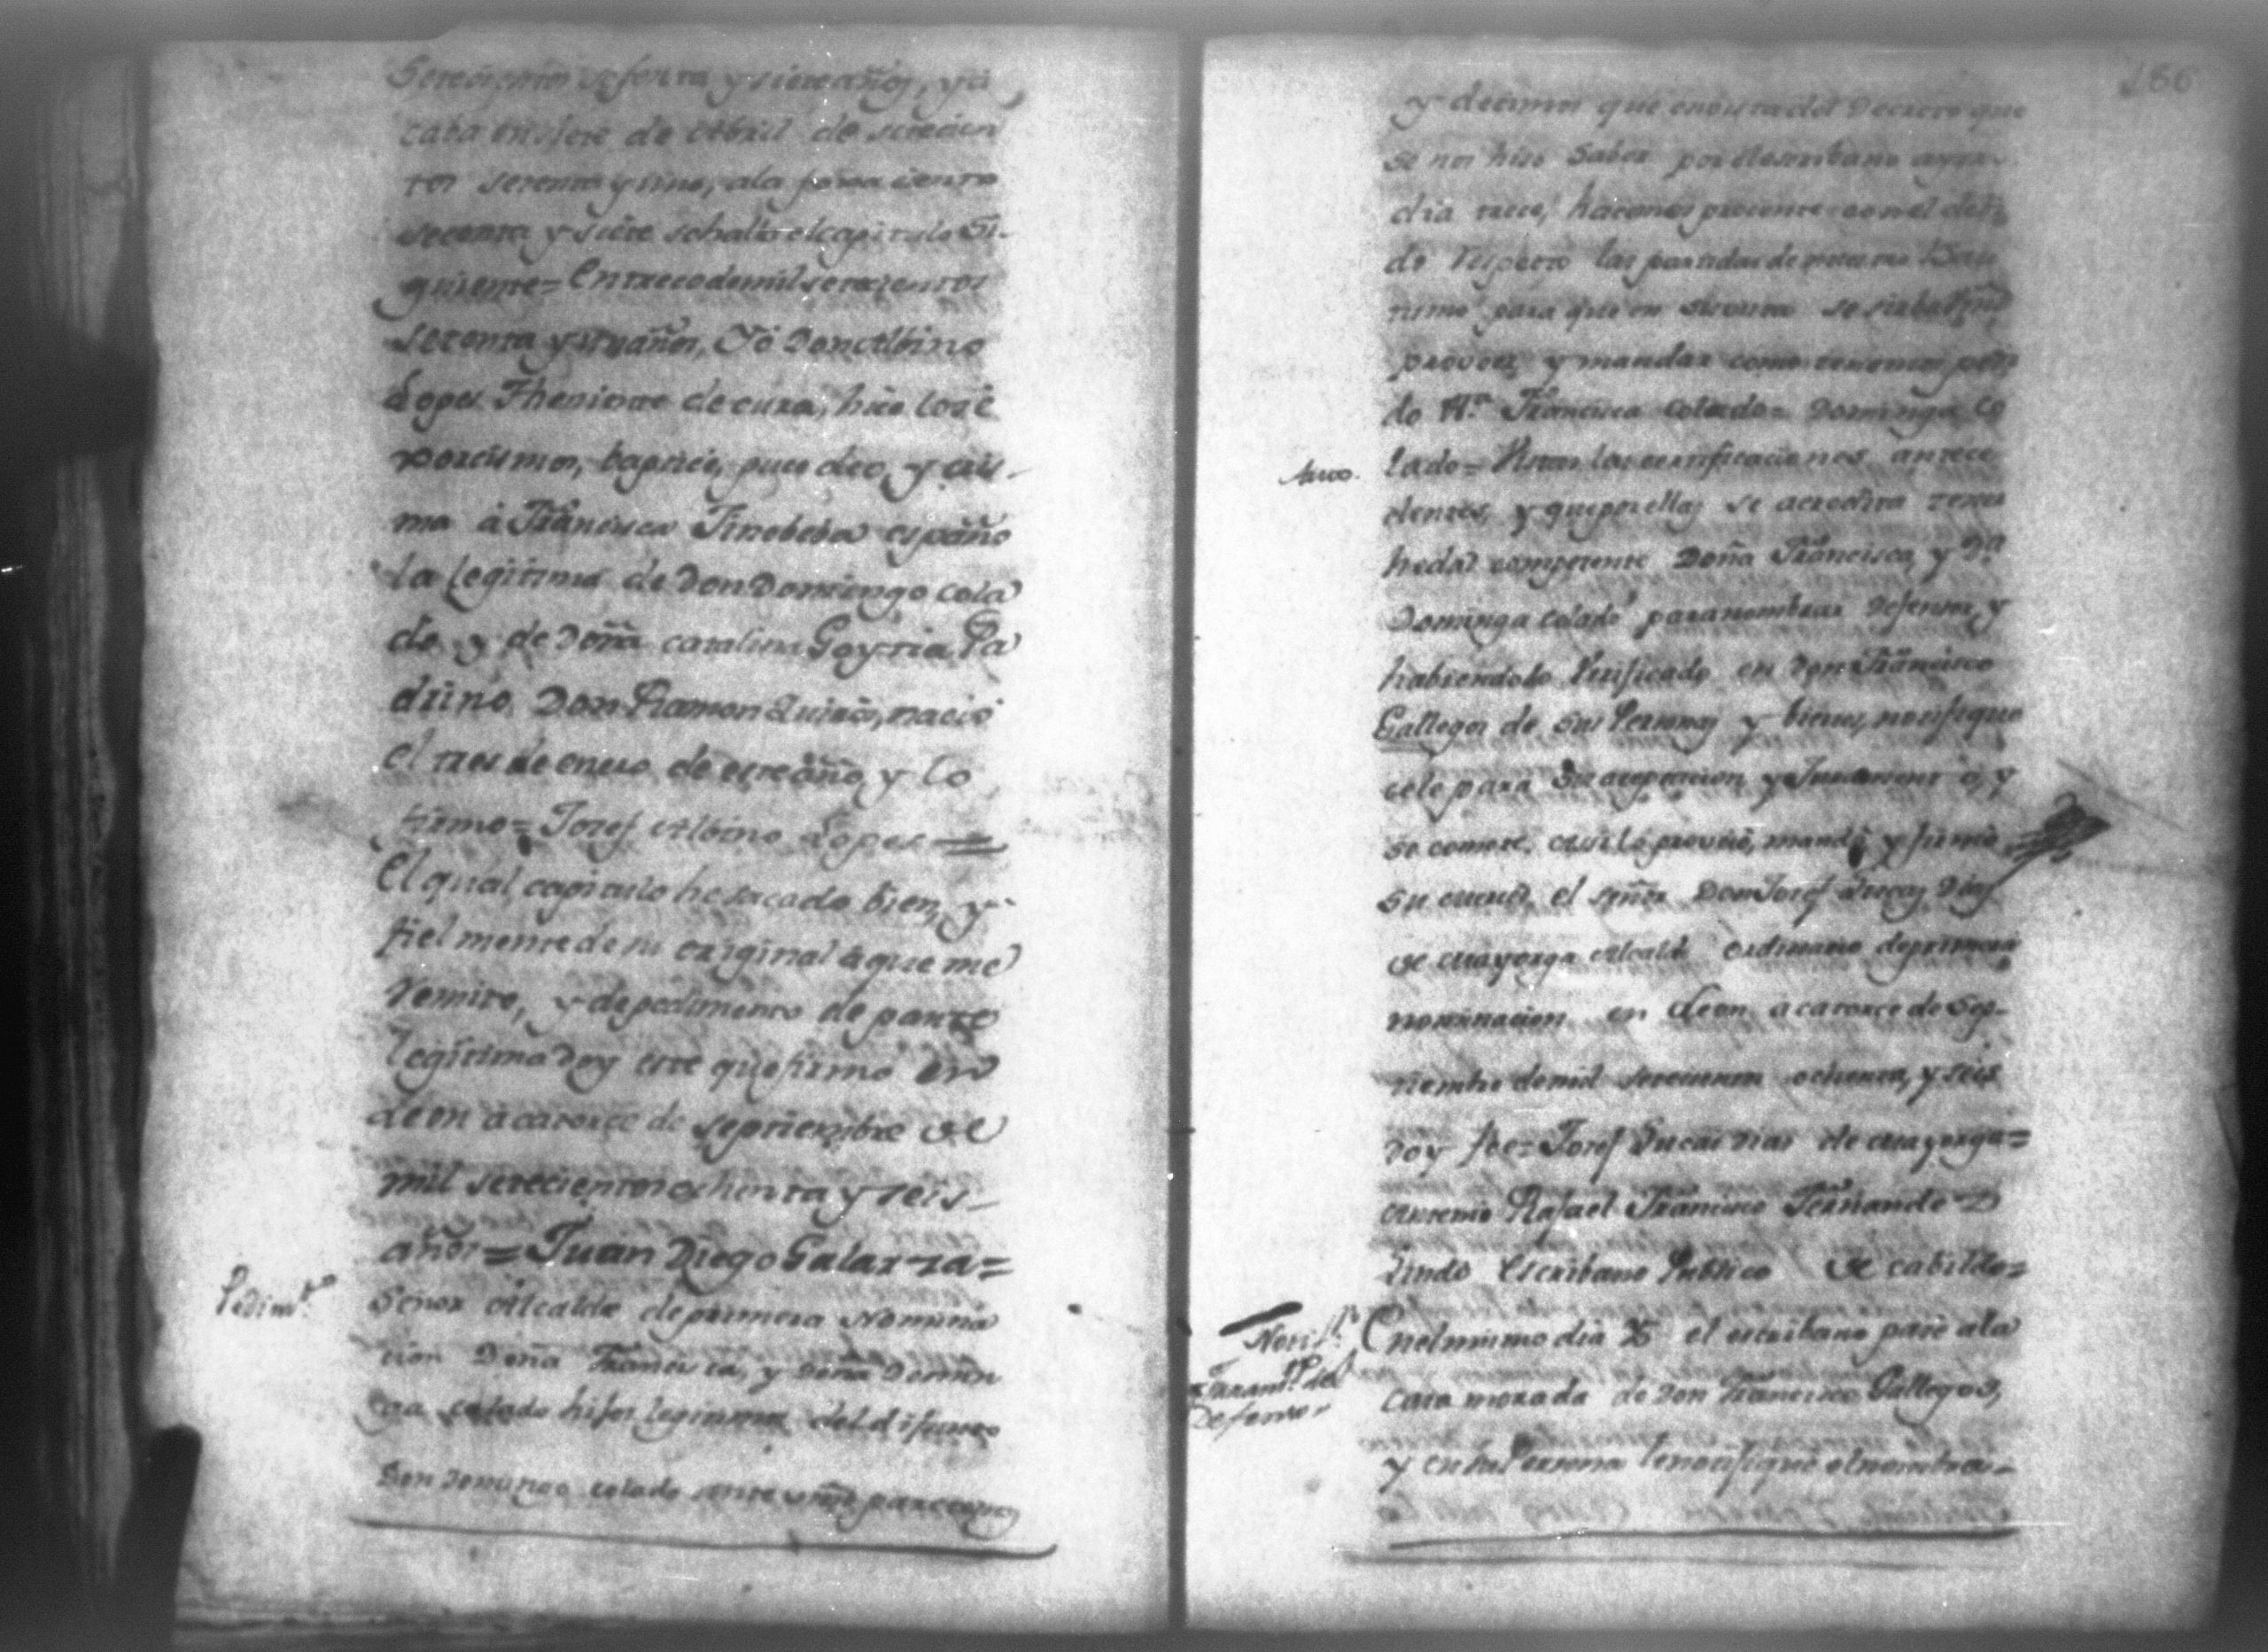 setecientos sesenta y siete años, y a
caba en siete de Abril de setecien
tos setenta y uno, a la foxa ciento
setenta y siete se halla el capitulo Si-
guiente = En trece de mil setecientos
setenta y años, Yo Don Albino
Lopes Theniente de cura, hice los e
xorcismos, baptice, puse oleo, y cris-
ma à Francisca españo
la legitima de Don Domingo cola
do y de Doña Catalina Goytia Pa
drino Don Ramon Quiros, nació
el tres de enero de este año, y lo
firmo = Josef Albino Lopes =
El qual capitulo he sacado bien, y
fielmente de su original à que me
Remito, y de pedimento de parte
legitima doy este que firmo en
Leon à catorce de septiembre de
mil setecientos ochenta y seis
años = Juan Diego Galarza =
Pedimto.
Señor Alcalde de primera Nomina
cion Doña Francisca, y Doña Domin
ga colado hijas legitimas del difunto
Don Domingo colado ante vmd parecemos
186
y decimos que en vista del Decreto que
se nos hiso Saber por el escribano ayer
dia trece, hacemos presente con el debi
do respeto las partidas de nuestro Bau
tismo para que en su vista se sirba vmd
proveer y mandar como tenemos pedi
do Ma. Francisca colado = Dominga Co
Auto.
lado = Vistas las certificaciones antece
dentes, y que por ellas se acredita tener
hedad competente Doña Francisca, y Da.
Dominga colado para nombrar Defensor, y
habiendolo Verificado en Don Francisco
Gallegos de sus Personas y bienes, notifique
sele para su aceptacion y Juramento, y
se comete. Asi lo proveió, mandó y firmó
su merced, el señor Don Josef Lucas Dias
de Mayorga Alcalde ordinario de primera
nominacion en Leon a catorce de Sep-
tiembre de mil setecientos ochenta, y seis
Doy fee = Josef Lucas Dias de Mayorga =
Antemi Rafael Francisco Fernandez
Lindo Escribano Publico de cabildo =
Notifn.
Juramto. del
Defensor
En el mismo dia Yo el escribano pasé a la
casa morada de Don Francisco Gallegos,
y en su Persona le notifiqué el nombra-